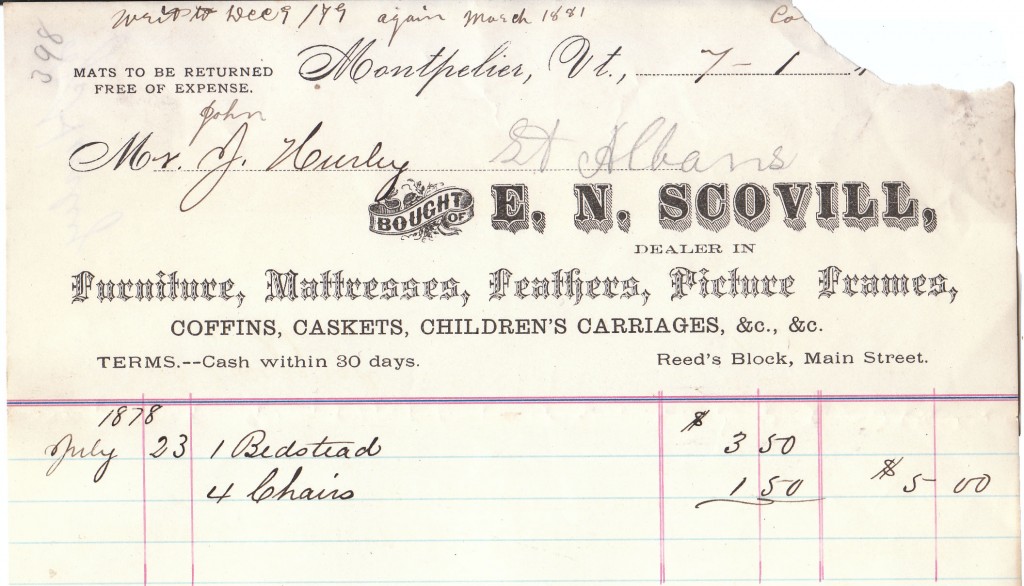 writ to Dec 9 /79 again March 1881 Co
398
MATS TO BE RETURNED
FREE OF EXPENSE.
Montpelier, Vt., 7 - 1
John
Mr. J. Hurley St Albans
BOUGHT OF E. N. SCOVILL,
DEALER IN
Furniture, Mattresses, Feathers, Picture Frames,
COFFINS, CASKETS, CHILDREN'S CARRIAGES, &c., &c.
TERMS.--Cash within 30 days. Reed's Block, Main Street.
1878
July 23 1 Bedstead $ 3 50
4 Chairs 1 50 $ 5 00